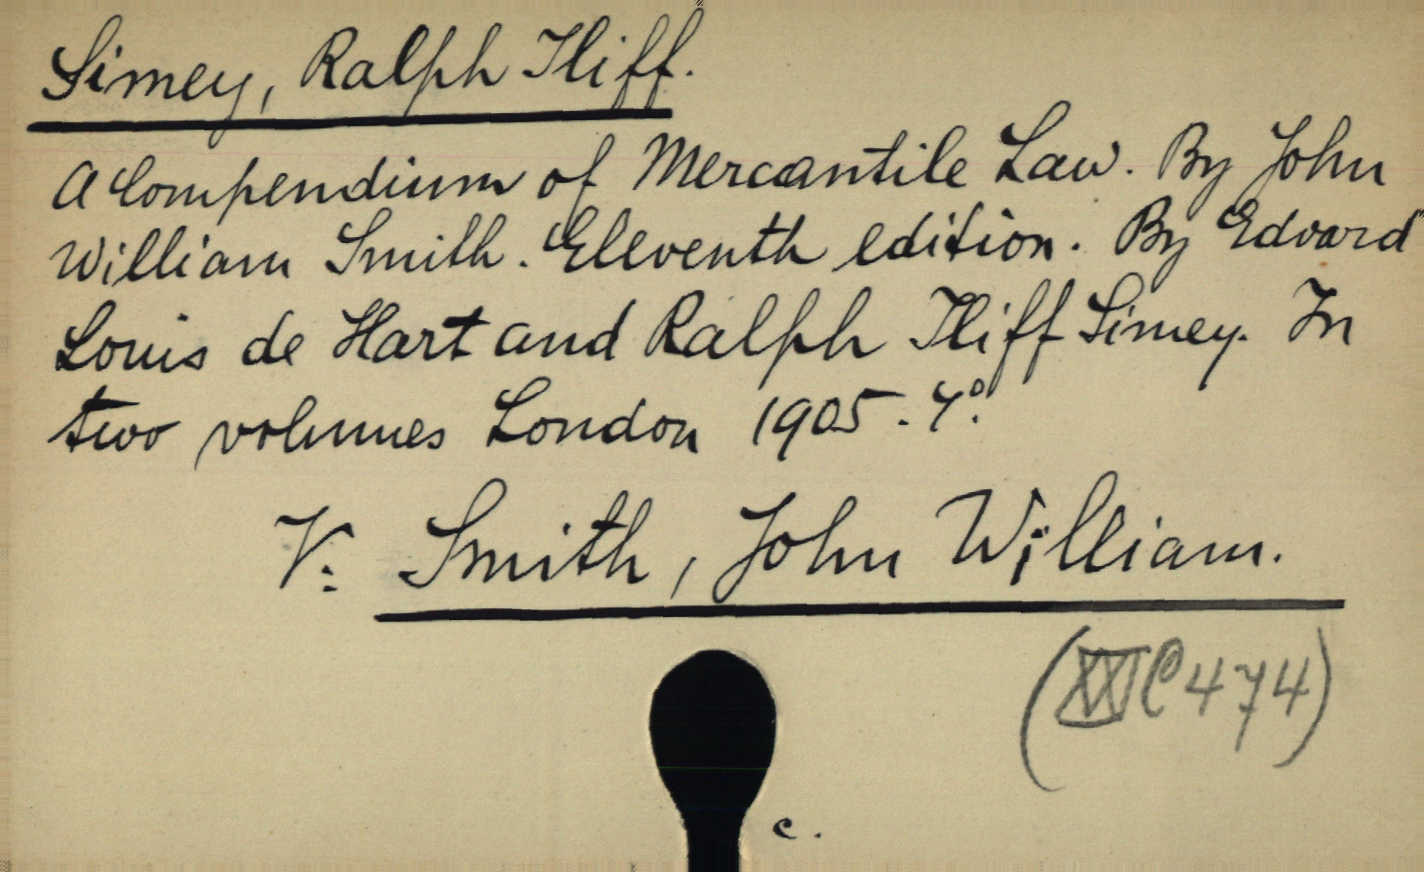 Simey, Ralph Iliff.
A Compendium of Mercantile Law. By John
William Smith. Eleventh edition. By Edward
Louis de Hart and Ralph Iliff Simey. In
two volumes London 1905. 4º.
V: Smith, John William.
(XXI C 474)
c.